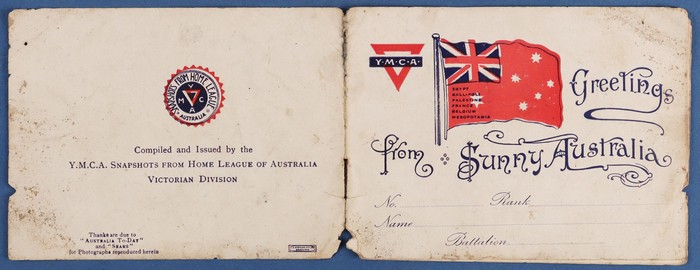 SNAPSHOTS FROM HOME LEAGUE
Y
M C
A
AUSTRALIA
Compiled and Issued by the
Y.M.C.A. Snapshots from Home League of Australia
Victorian Division
Thanks are due to
"Australia To-Day"
and "Sears"
for Photographs reproduced herein
Y·M·C·A·
EGYPT
GALLIPOLI
PALESTINE
FRANCE
BELGIUM
MESOPOTAMIA
Greetings
from Sunny Australia
No. Rank
Name
Battalion